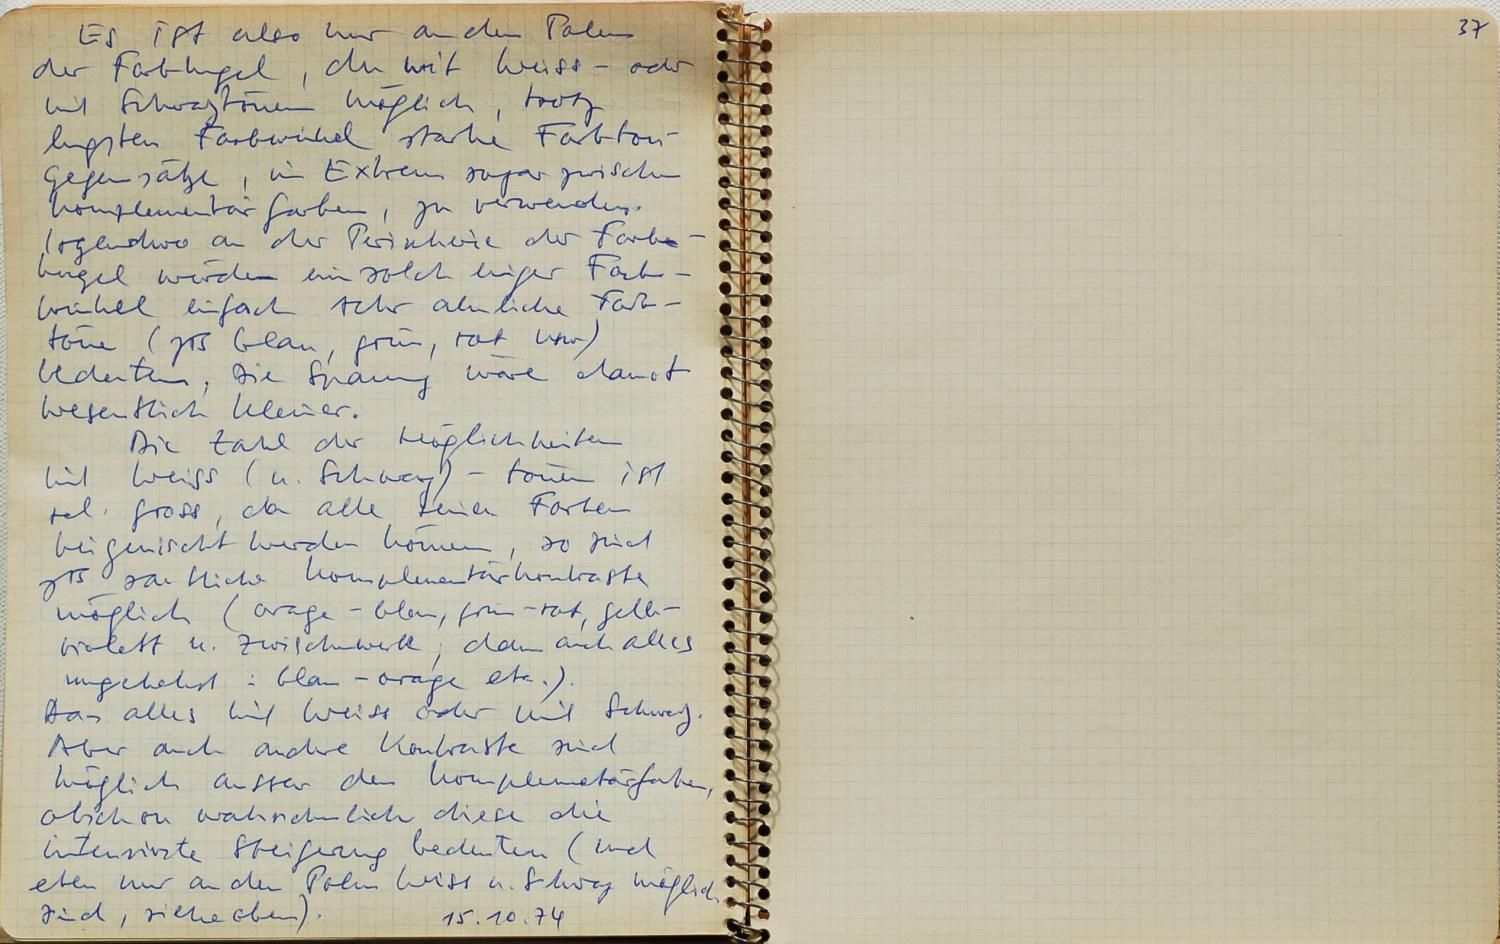 Es ist also nur an den Polen
der Farbkugel, den mit Weiss- oder
mit Schwarztönen möglich, trotz
engsten Farbwinkel starke Farbton-
gegensätze, im Extrem sogar zwischen
Komplementärfarben, zu verwenden.
Irgendwo an der Peripherie der Farb-
kugel würden ein solch enger Farb-
winkel einfach sehr ähnliche Farb-
töne (zB blau, grün, rot usw)
bedeuten, die Spannung wäre damit
wesentlich kleiner.
Die Zahl der Möglichkeiten
mit Weiss (u. Schwarz)-tönen ist
rel. gross, da alle reinen Farben
beigemischt werden können, so sind
zB sämtliche Komplementärkontraste
möglich (orage-blau, grün-rot, gelb-
violett u. Zwischenwerte, dann auch alles
umgekehrt: blau-orage etc.).
Das alles mit Weiss oder mit Schwarz.
Aber auch andere Kontraste sind
möglich ausser den Komplemetärfarben,
obschon wahrscheinlich diese die
intensivste Steigerung bedeuten (und
eben nur an den Polen Weiss u. Schwarz möglich
sind, siehe oben). 15.10.74
37